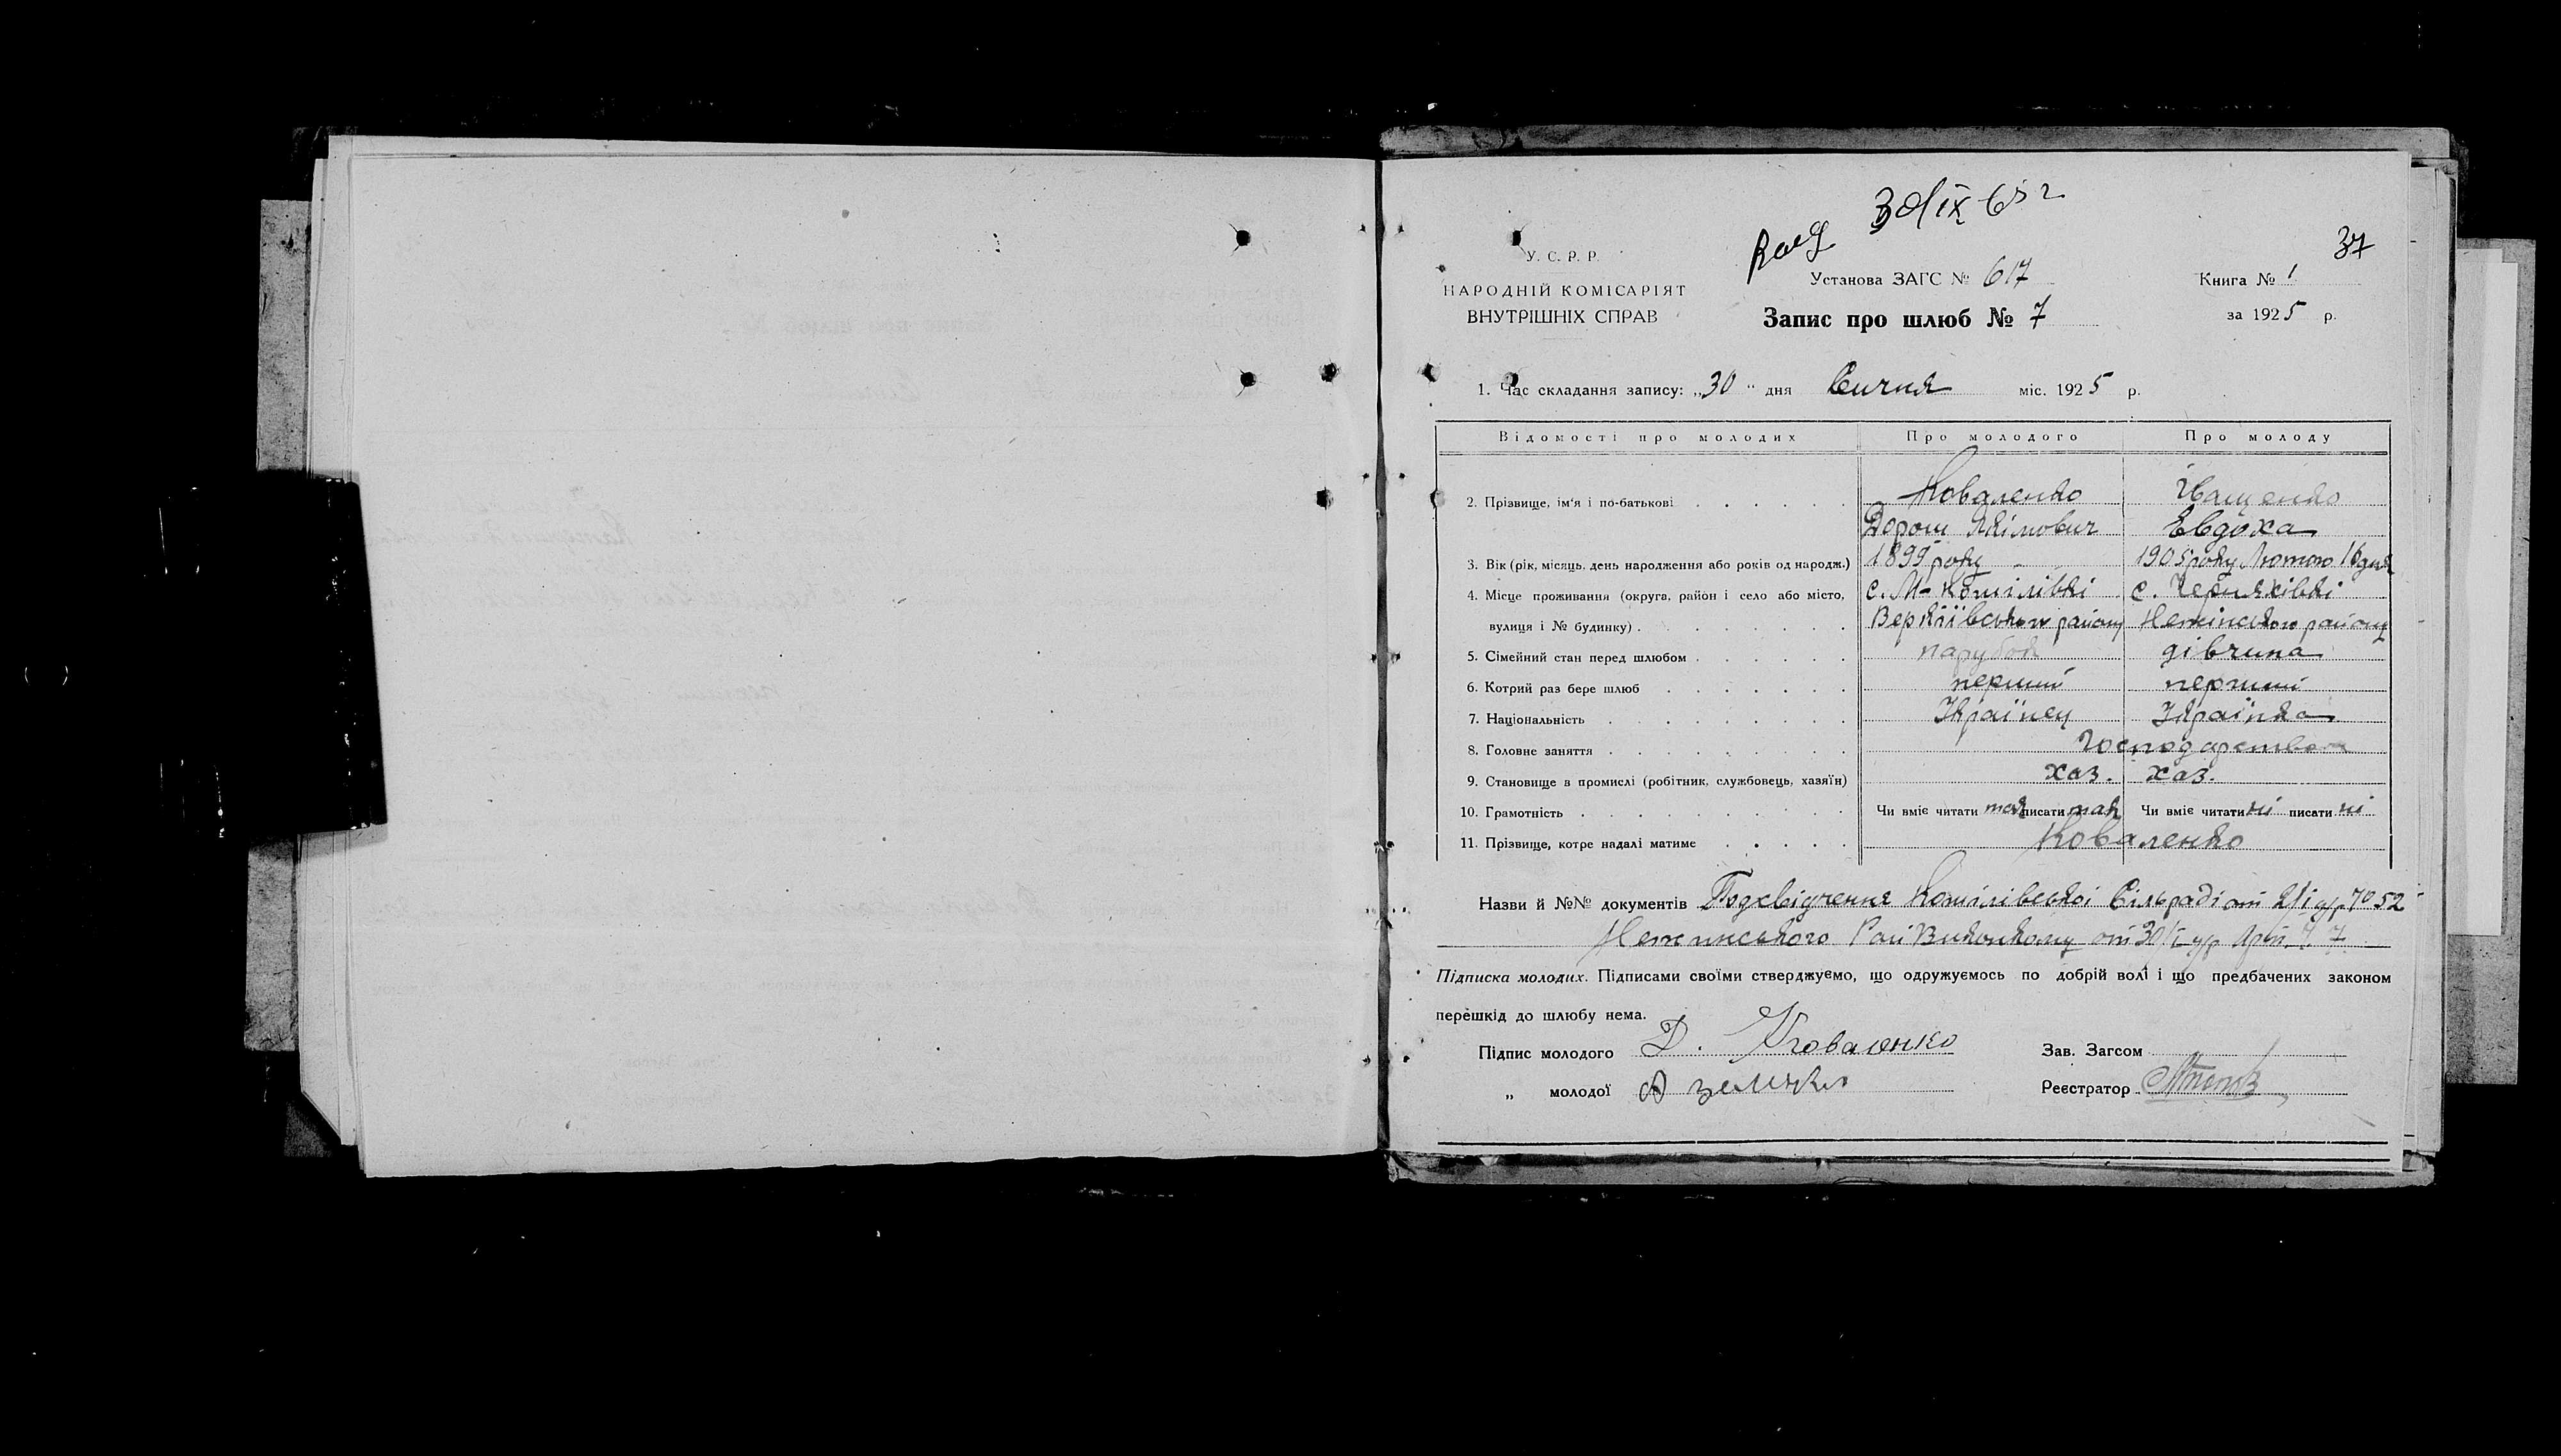 37
У. С. Р. Р.
НАРОДНІЙ КОМІСАРІЯТ
ВНУТРІШНІХ СПРАВ
Установа ЗАГС № 617
Запис про шлюб № 7
Книга № 1
за 1925 р.
1. Час складання запису: „30" дня Сичня міс. 1925 р.
Відомості про молодих Про молодого Про молоду
2. Прізвище, ім'я і по-батькові Коваленко Іващенко
Дорош Якімович Евдоха
3. Вік (рік, місяць, день народження або років од народж.) 1899 року 1905 року Лютого 16 дня
4. Місце проживання (округа, район і село або місто, с. М-Кошілівкі с. Черняхівкі
вулиця і № будинку) Веркіївського району Неженського району
5. Сімейний стан перед шлюбом парубок дівчина
6. Котрий раз бере шлюб перший перший
7. Національність Українец Українка
8. Головне заняття Господарством
9. Становище в промислі (робітник, службовець, хазяїн) хаз. хаз.
10. Грамотність Чи вміє читати так писати так Чи вміє читати ні писати ні
11. Прізвище, котре надалі матиме Коваленко
Назви й №№ документів Кошілівської Сільради от 2/I № 52
Неженського РайВиконкому от 30/I № 7
Підписка молодих. Підписами своїми стверджуємо, що одружуємось по добрій волі і що предбачених законом
перешкід до шлюбу нема.
Підпис молодого Д. Коваленко Зав. Загсом
„ молодої Реєстратор